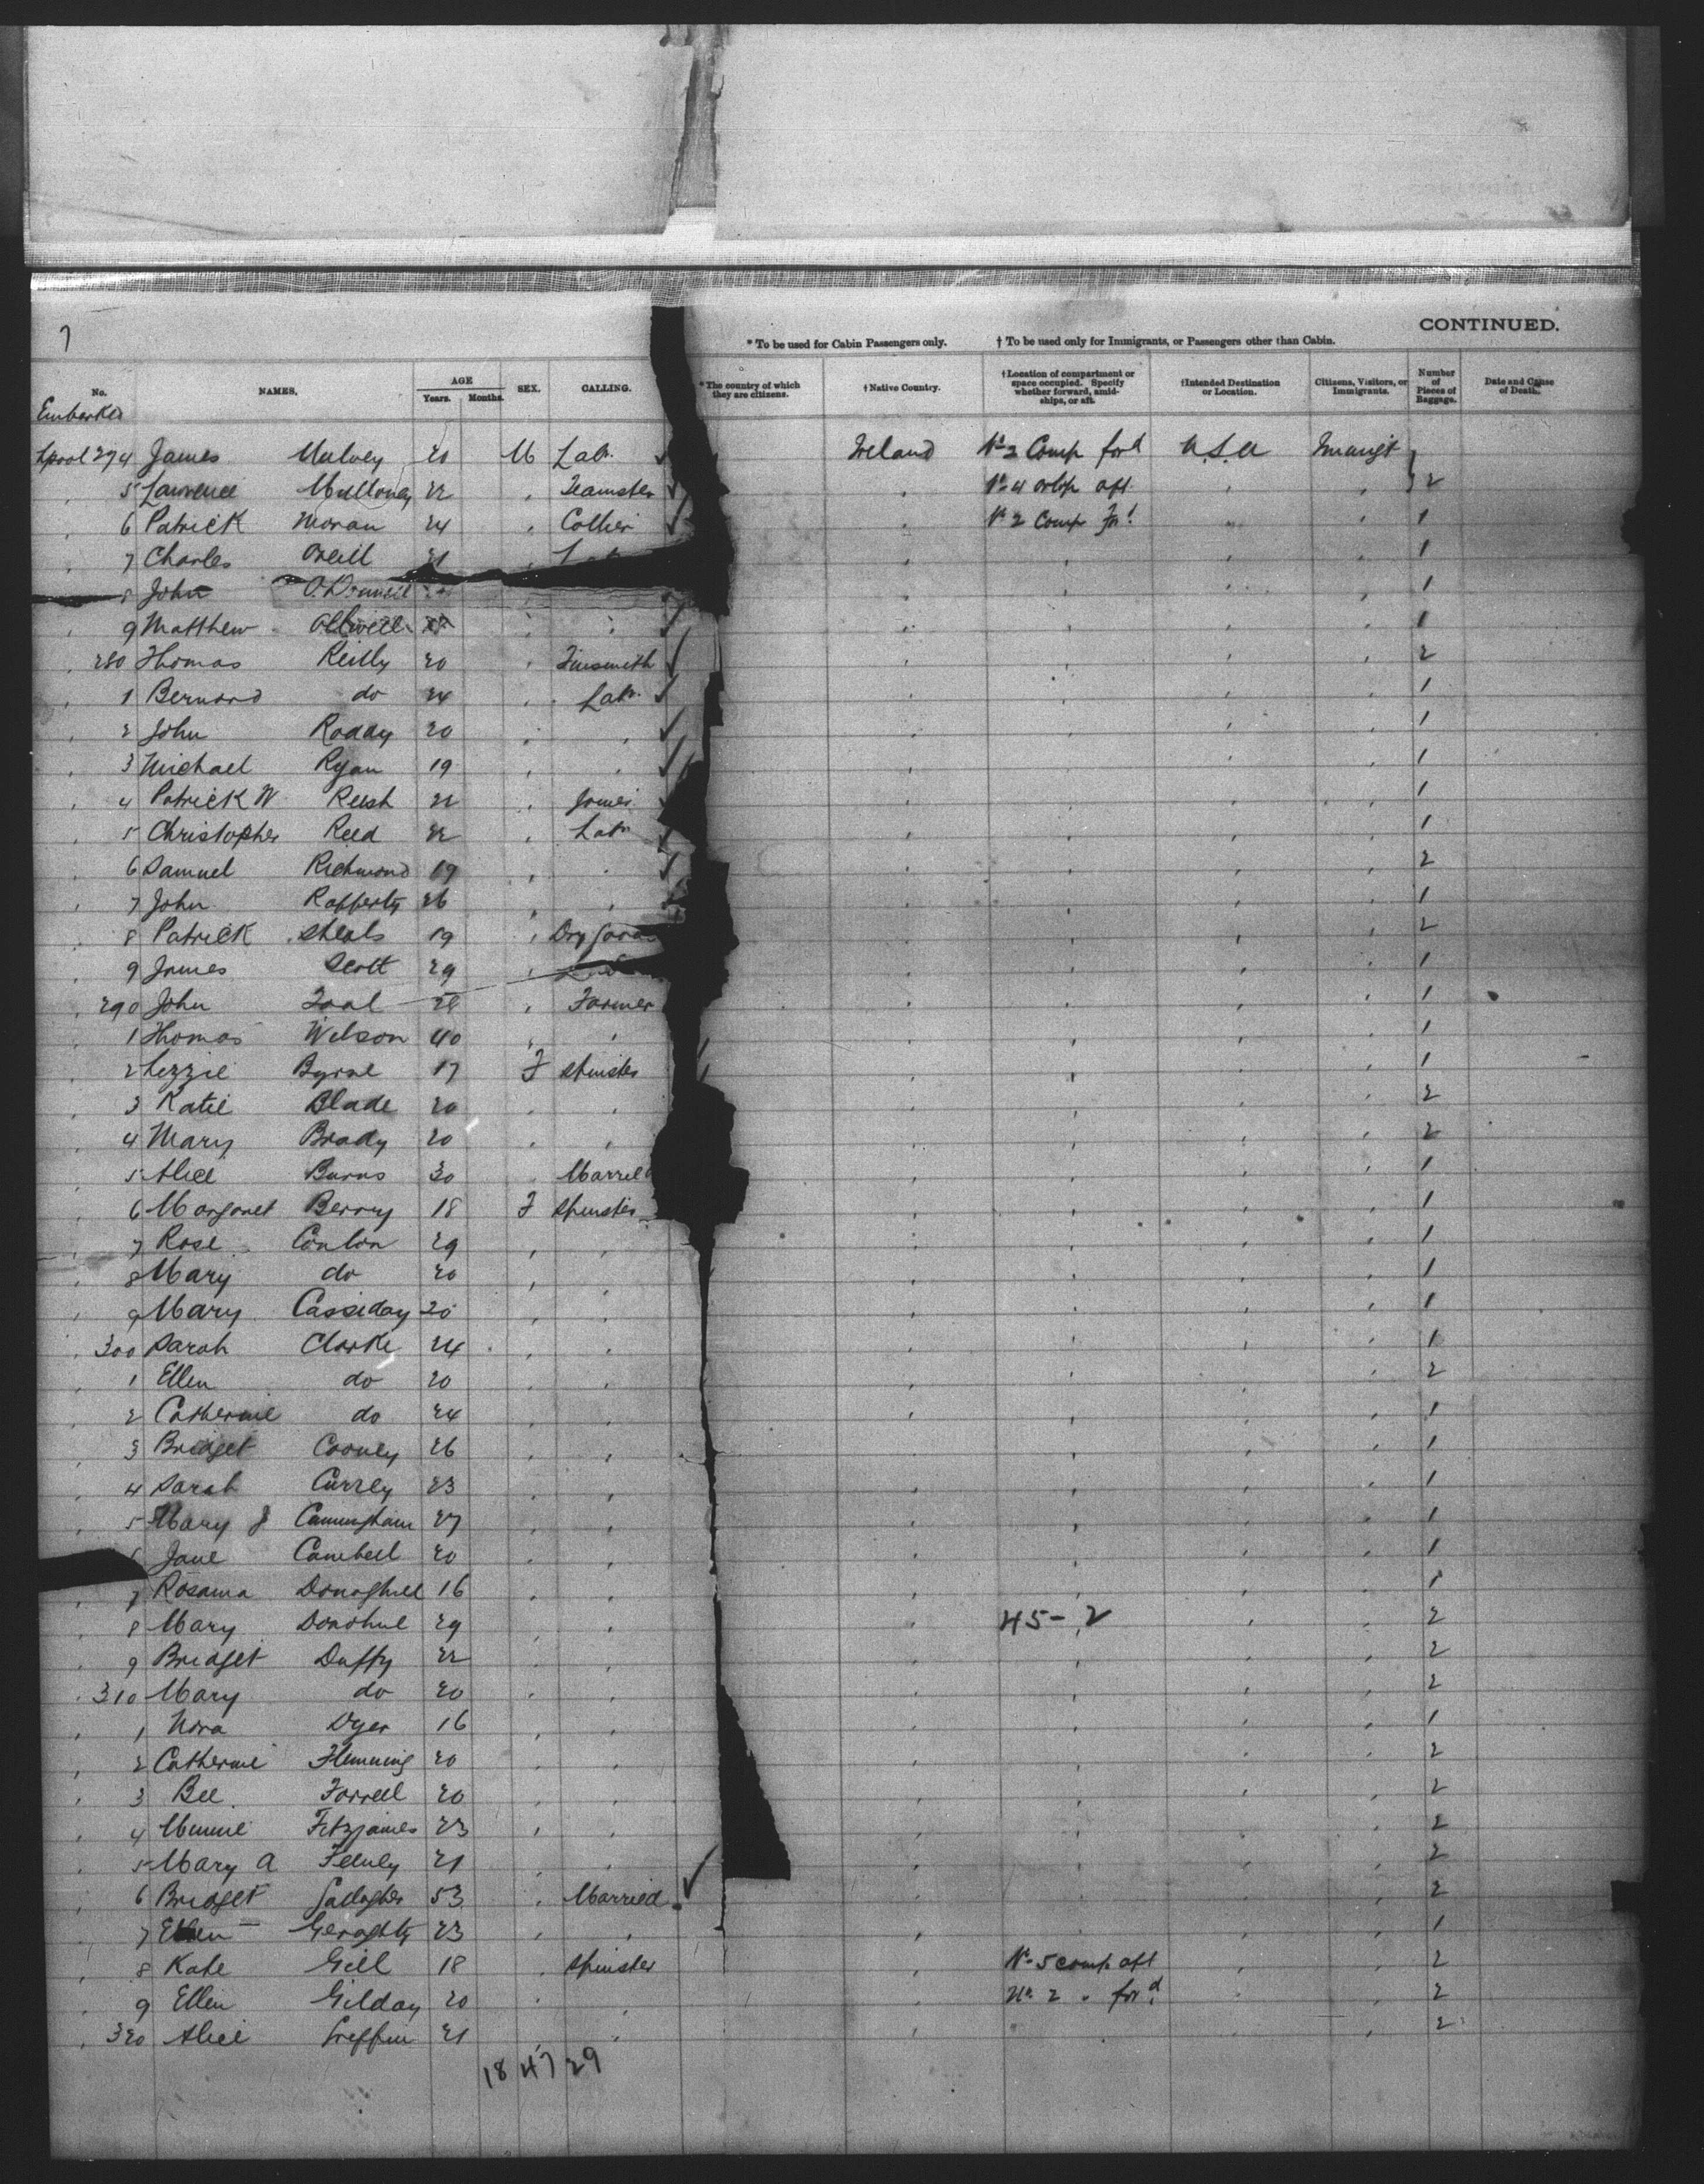 7
CONTINUED.
* To be used for Cabin Passengers only. † To be used only for Immigrants, or Passengers other than Cabin.
No. NAMES. AGE Years. Months. SEX. CALLING. *The country of which they are citizens. †Native Country. †Location of compartment or space occupied. Specify whether forward, amidships, or aft. †Intended Destination or Location. Citizens, Visitors, or Immigrants. Number of Pieces of Baggage. Date and Cause of Death.
Embarked
Lpool 274 James Mulvey 20 M Labr. Ireland No 2 Comp ford U.S.A Immigt
5 Lawrence Mulloney 22 " Teamster " No 4 orlop aft " " 2
6 Patrick Moran 24 " Collier " No 2 Comp ford " " 1
7 Charles Oneill 21 " " " " " 1
8 John " " " " " 1
9 Matthew " " " " " " 1
280 Thomas Reilly 20 " Tinsmith " " " " 2
1 Bernard do 24 " Labr. " " " " 1
2 John Roddy 20 " " " " " " 1
3 Michael Ryan 19 " " " " " " 1
4 Patrick W Rush " " " " " 1
5 Christopher Reed 22 " Labr " " " " 1
6 Samuel Richmond 19 " " " " " " 2
7 John Rafferty 26 " " " " " " 1
8 Patrick Sheals 19 " Dry Goods " " " " 2
9 James Scott 29 " " " " " 1
290 John Toal 28 " Farmer " " " " 1
1 Thomas Wilson 40 " " " " " " 1
2 Lizzie Byrne 17 F Spinster " " " " 1
3 Katie Blade 20 " " " " " " 2
4 Mary Brady 20 " " " " " " 2
5 Alice Burns 30 " Married " " " " 1
6 Margaret Berry 18 F Spinster " " " " 1
7 Rose Conlon 29 " " " " " " 1
8 Mary do 20 " " " " " " 1
9 Mary Cassiday 20 " " " " " " 1
300 Sarah Clarke 24 " " " " " " 1
1 Ellen do 20 " " " " " " 2
2 Catherine do 24 " " " " " " 1
3 Bridget Cooney 26 " " " " " " 1
4 Sarah Currey 23 " " " " " " 1
5 Mary J Cunningham 27 " " " " " " 1
6 Jane Cambell 20 " " " " " " 1
7 Rosanna Donaghue 16 " " " " " " 1
8 Mary Donohue 29 " " " 45-2 " " 2
9 Bridget Duffy 22 " " " " " " 2
310 Mary do 20 " " " " " " 2
1 Nora Dyer 16 " " " " " " 1
2 Catherine Flemming 20 " " " " " " 2
3 Bee Farrell 20 " " " " " " 2
4 Minnie Fitzjames 23 " " " " " " 2
5 Mary A 21 " " " " " " 2
6 Bridget Gallagher 53 " Married " " " " 2
7 Ellen Geraghty 23 " " " " " " 1
8 Kate Gill 18 " Spinster " No 5 comp aft " " 2
9 Ellen Gilday 20 " " " No 2 " ford " " 2
320 Alice Griffin 21 " " " " " " 2
18 47 29